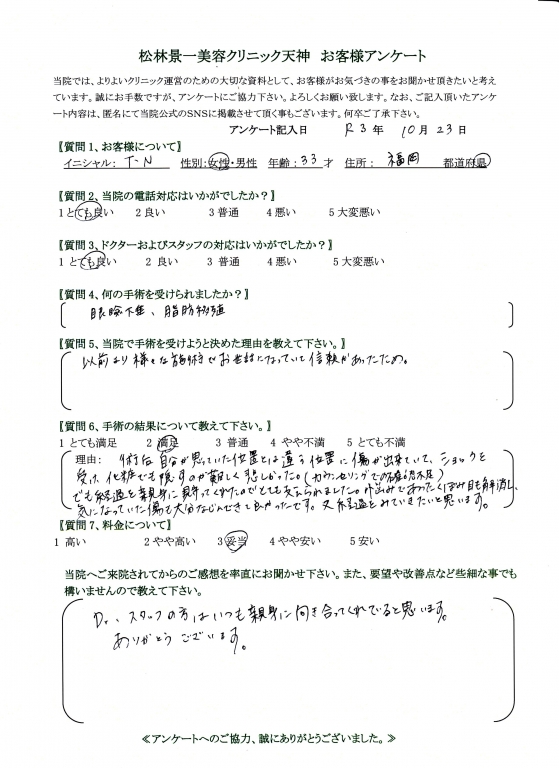 松林景一美容クリニック天神 お客様アンケート
当院では、よりよいクリニック運営のための大切な資料として、お客様がお気づきの事をお聞かせ頂きたいと考え
ています。誠にお手数ですが、アンケートにご協力下さい。よろしくお願い致します。なお、ご記入頂いたアンケ
ート内容は、匿名にて当院公式のSNSに掲載させて頂く事もございます。何卒ご了承下さい。
アンケート記入日 R3年 10月23日
【質問1、お客様について】
イニシャル: T-N 性別:女性・男性 年齢:33才 住所: 福岡 都道府県
【質問2、当院の電話対応はいかがでしたか?】
1とても良い 2良い 3普通 4悪い 5大変悪い
【質問3、ドクターおよびスタッフの対応はいかがでしたか?】
1とても良い 2 良い 3 普通 4悪い 5大変悪い
【質問4、何の手術を受けられましたか?】
眼瞼下垂、脂肪移植
【質問5、当院で手術を受けようと決めた理由を教えて下さい。】
以前より様々な施術でお世話になっていて信頼があったため。
【質問6、手術の結果について教えて下さい。】
1とても満足 2満足 3 普通 4やや不満 5とても不満
理由: 術后自分が思っていた位置とは違う位置に傷が出来ていて、ショックを
受け、化粧でも隠すのが難しく悲しかった。(カウンセリングでの確認不足)
でも経過を親身に見守ってくれたのでとても支えられました。凹みであったくぼみ目も解消し、
気になっていた傷も大分なじんできて良かったです。又経過をみていきたいと思います。
【質問7、料金について】
1 高い 2やや高い 3妥当 4やや安い 5安い
当院へご来院されてからのご感想を率直にお聞かせ下さい。また、要望や改善点など些細な事でも
構いませんので教えて下さい。
Dr.、スタッフの方はいつも親身に向き合ってくれていると思います。
ありがとうございます。
≪アンケートへのご協力、誠にありがとうございました。≫